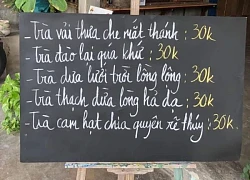 - Trà vải thưa che mắt thánh : 30k
- Trà đào lại qúa khứ : 30k
- Trà dưa lưới trời lồng lộng : 30k
- Trà thạch dừa lòng hả dạ : 30k
- Trà cam hạt chia quyên rẽ thúy : 30k